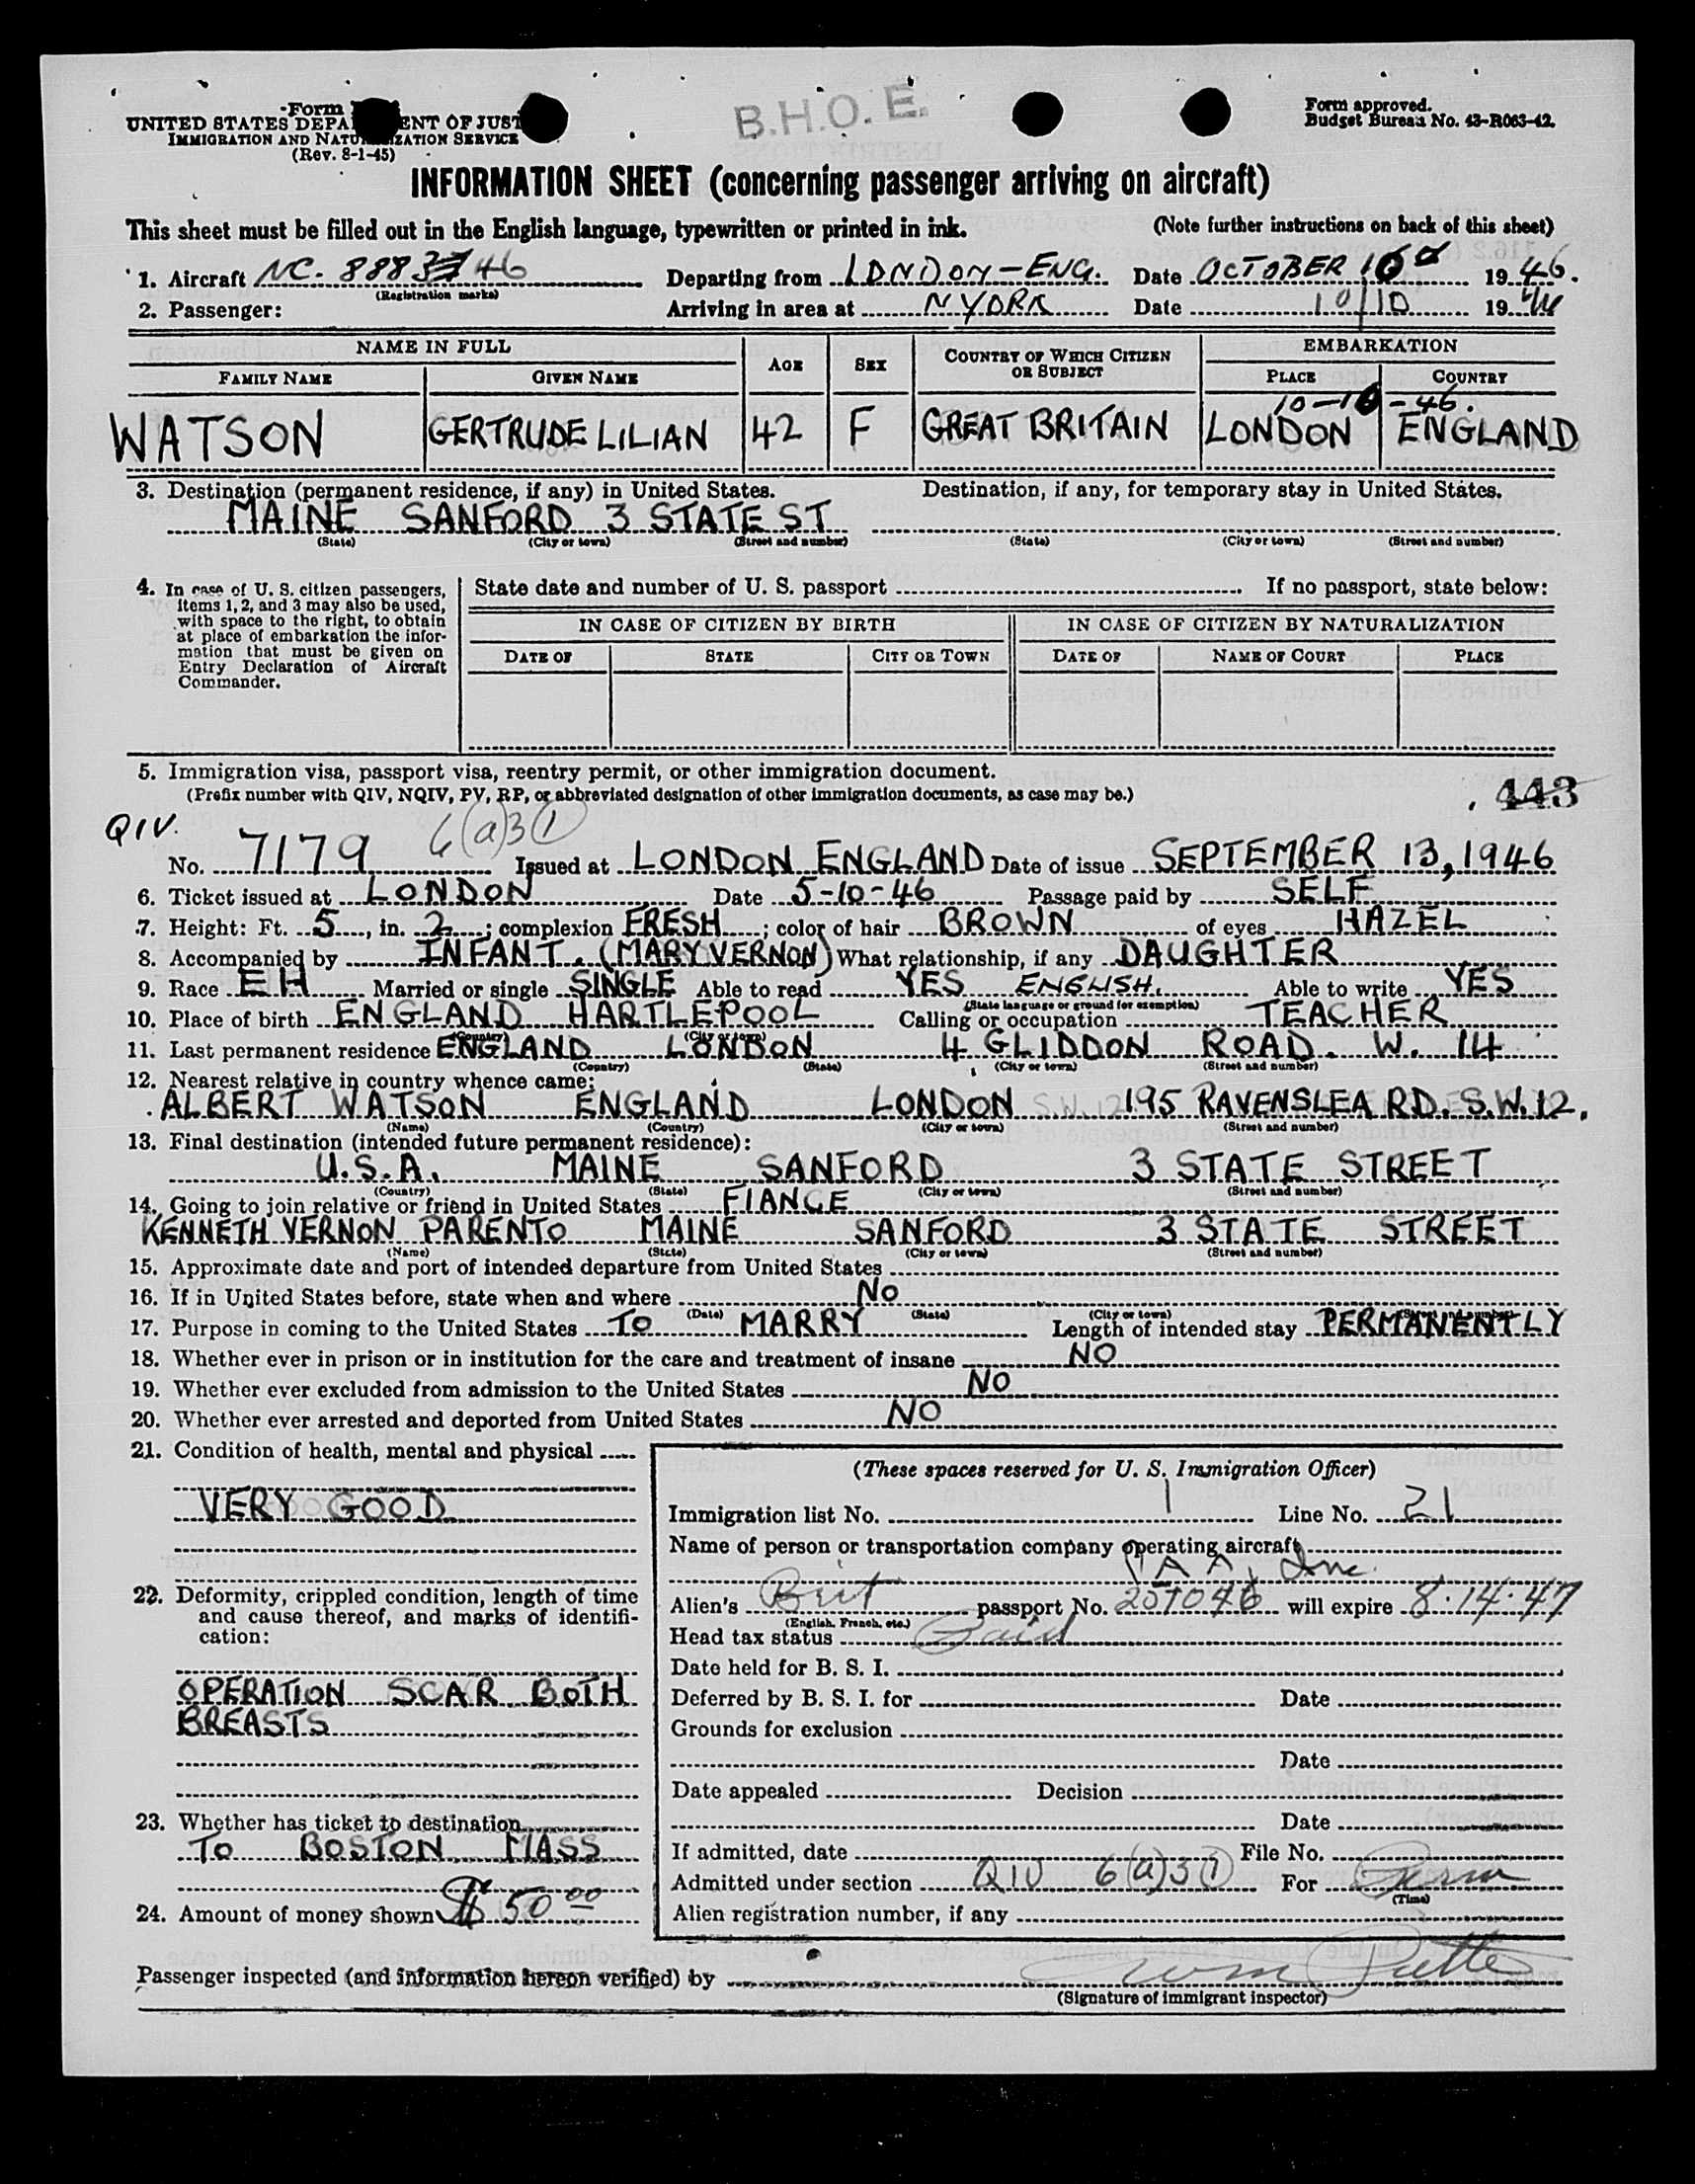 B.H.O.E.
Form
UNITED STATES DEPA ENT OF JUST
IMMIGRATION AND NATU IZATION SERVICE
(Rev. 8-1-45)
Form approved.
Budget Bureau No. 43-R063-42.
INFORMATION SHEET (concerning passenger arriving on aircraft)
This sheet must be filled out in the English language, typewritten or printed in ink. (Note further instructions on back of this sheet)
1. Aircraft NC. 888 46 Departing from LONDON-ENG. Date OCTOBER 1946.
(Registration marks)
2. Passenger: Arriving in area at N YORK Date 10/10 19
NAME IN FULL AGE SEX COUNTRY OF WHICH CITIZEN OR SUBJECT EMBARKATION
FAMILY NAME GIVEN NAME PLACE COUNTRY
10- -46.
WATSON GERTRUDE LILIAN 42 F GREAT BRITAIN LONDON ENGLAND
3. Destination (permanent residence, if any) in United States. Destination, if any, for temporary stay in United States.
MAINE SANFORD 3 STATE ST
(State) (City or town) (Street and number) (State) (City or town) (Street and number)
4. In case of U. S. citizen passengers,
items 1, 2, and 3 may also be used,
with space to the right, to obtain
at place of embarkation the infor-
mation that must be given on
Entry Declaration of Aircraft
Commander.
State date and number of U. S. passport If no passport, state below:
IN CASE OF CITIZEN BY BIRTH IN CASE OF CITIZEN BY NATURALIZATION
DATE OF STATE CITY OR TOWN DATE OF NAME OF COURT PLACE
5. Immigration visa, passport visa, reentry permit, or other immigration document.
(Prefix number with QIV, NQIV, PV, RP, or abbreviated designation of other immigration documents, as case may be.)
443
QIV. 6(a)3(1)
No. 7179 Issued at LONDON ENGLAND Date of issue SEPTEMBER 13, 1946
6. Ticket issued at LONDON Date 5-10-46 Passage paid by SELF
7. Height: Ft. 5, in. 2; complexion FRESH; color of hair BROWN of eyes HAZEL
8. Accompanied by INFANT. (MARY VERNON) What relationship, if any DAUGHTER
9. Race EH Married or single SINGLE Able to read YES ENGLISH. Able to write YES
(State language or ground for exemption)
10. Place of birth ENGLAND HARTLEPOOL Calling or occupation TEACHER
(Country) (City or town)
11. Last permanent residence ENGLAND LONDON 4 GLIDDON ROAD. W. 14
(Country) (State) (City or town) (Street and number)
12. Nearest relative in country whence came:
ALBERT WATSON ENGLAND LONDON 195 RAVENSLEA RD. S.W.12.
(Name) (Country) (City or town) (Street and number)
13. Final destination (intended future permanent residence):
U.S.A. MAINE SANFORD 3 STATE STREET
(Country) (State) (City or town) (Street and number)
14. Going to join relative or friend in United States FIANCE
KENNETH VERNON PARENTO MAINE SANFORD 3 STATE STREET
(Name) (State) (City or town) (Street and number)
15. Approximate date and port of intended departure from United States
16. If in United States before, state when and where NO
(Date) (State) (City or town) (Street and number)
17. Purpose in coming to the United States TO MARRY Length of intended stay PERMANENTLY
18. Whether ever in prison or in institution for the care and treatment of insane NO
19. Whether ever excluded from admission to the United States NO
20. Whether ever arrested and deported from United States NO
21. Condition of health, mental and physical
VERY GOOD
22. Deformity, crippled condition, length of time
and cause thereof, and marks of identifi-
cation:
OPERATION SCAR BOTH
BREASTS
23. Whether has ticket to destination
TO BOSTON MASS
24. Amount of money shown $50 00
(These spaces reserved for U. S. Immigration Officer)
Immigration list No. 1 Line No. 21
Name of person or transportation company operating aircraft
PAA, Inc.
Alien's Brit passport No. will expire 8.14.47
(English, French, etc.)
Head tax status Paid
Date held for B. S. I.
Deferred by B. S. I. for Date
Grounds for exclusion
Date
Date appealed Decision
Date
If admitted, date File No.
Admitted under section QIV 6(a)3(1) For Perm
(Time)
Alien registration number, if any
Passenger inspected (and information hereon verified) by
(Signature of immigrant inspector)